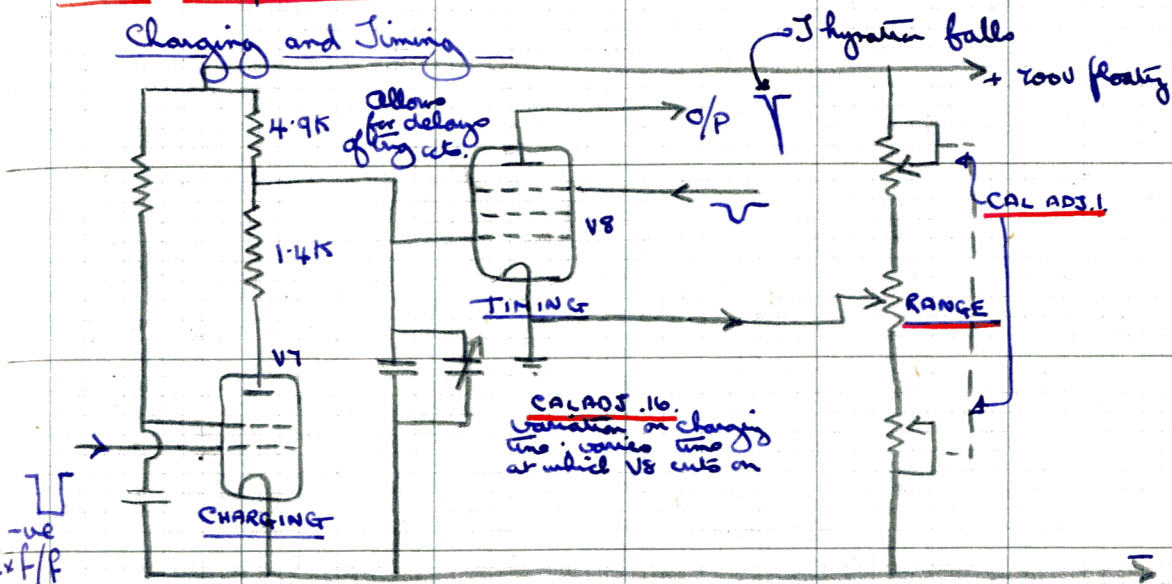 Charging and Timing
Thyratron falls
+ 700V floating
4.9K
Allows
for delays
of trig ccts.
O/P
CAL ADJ.1
V8
1.4K
TIMING
RANGE
V7
CAL ADJ.16.
variation on charging
time; varies time
at which V8 cuts on
CHARGING
-ve
f/f